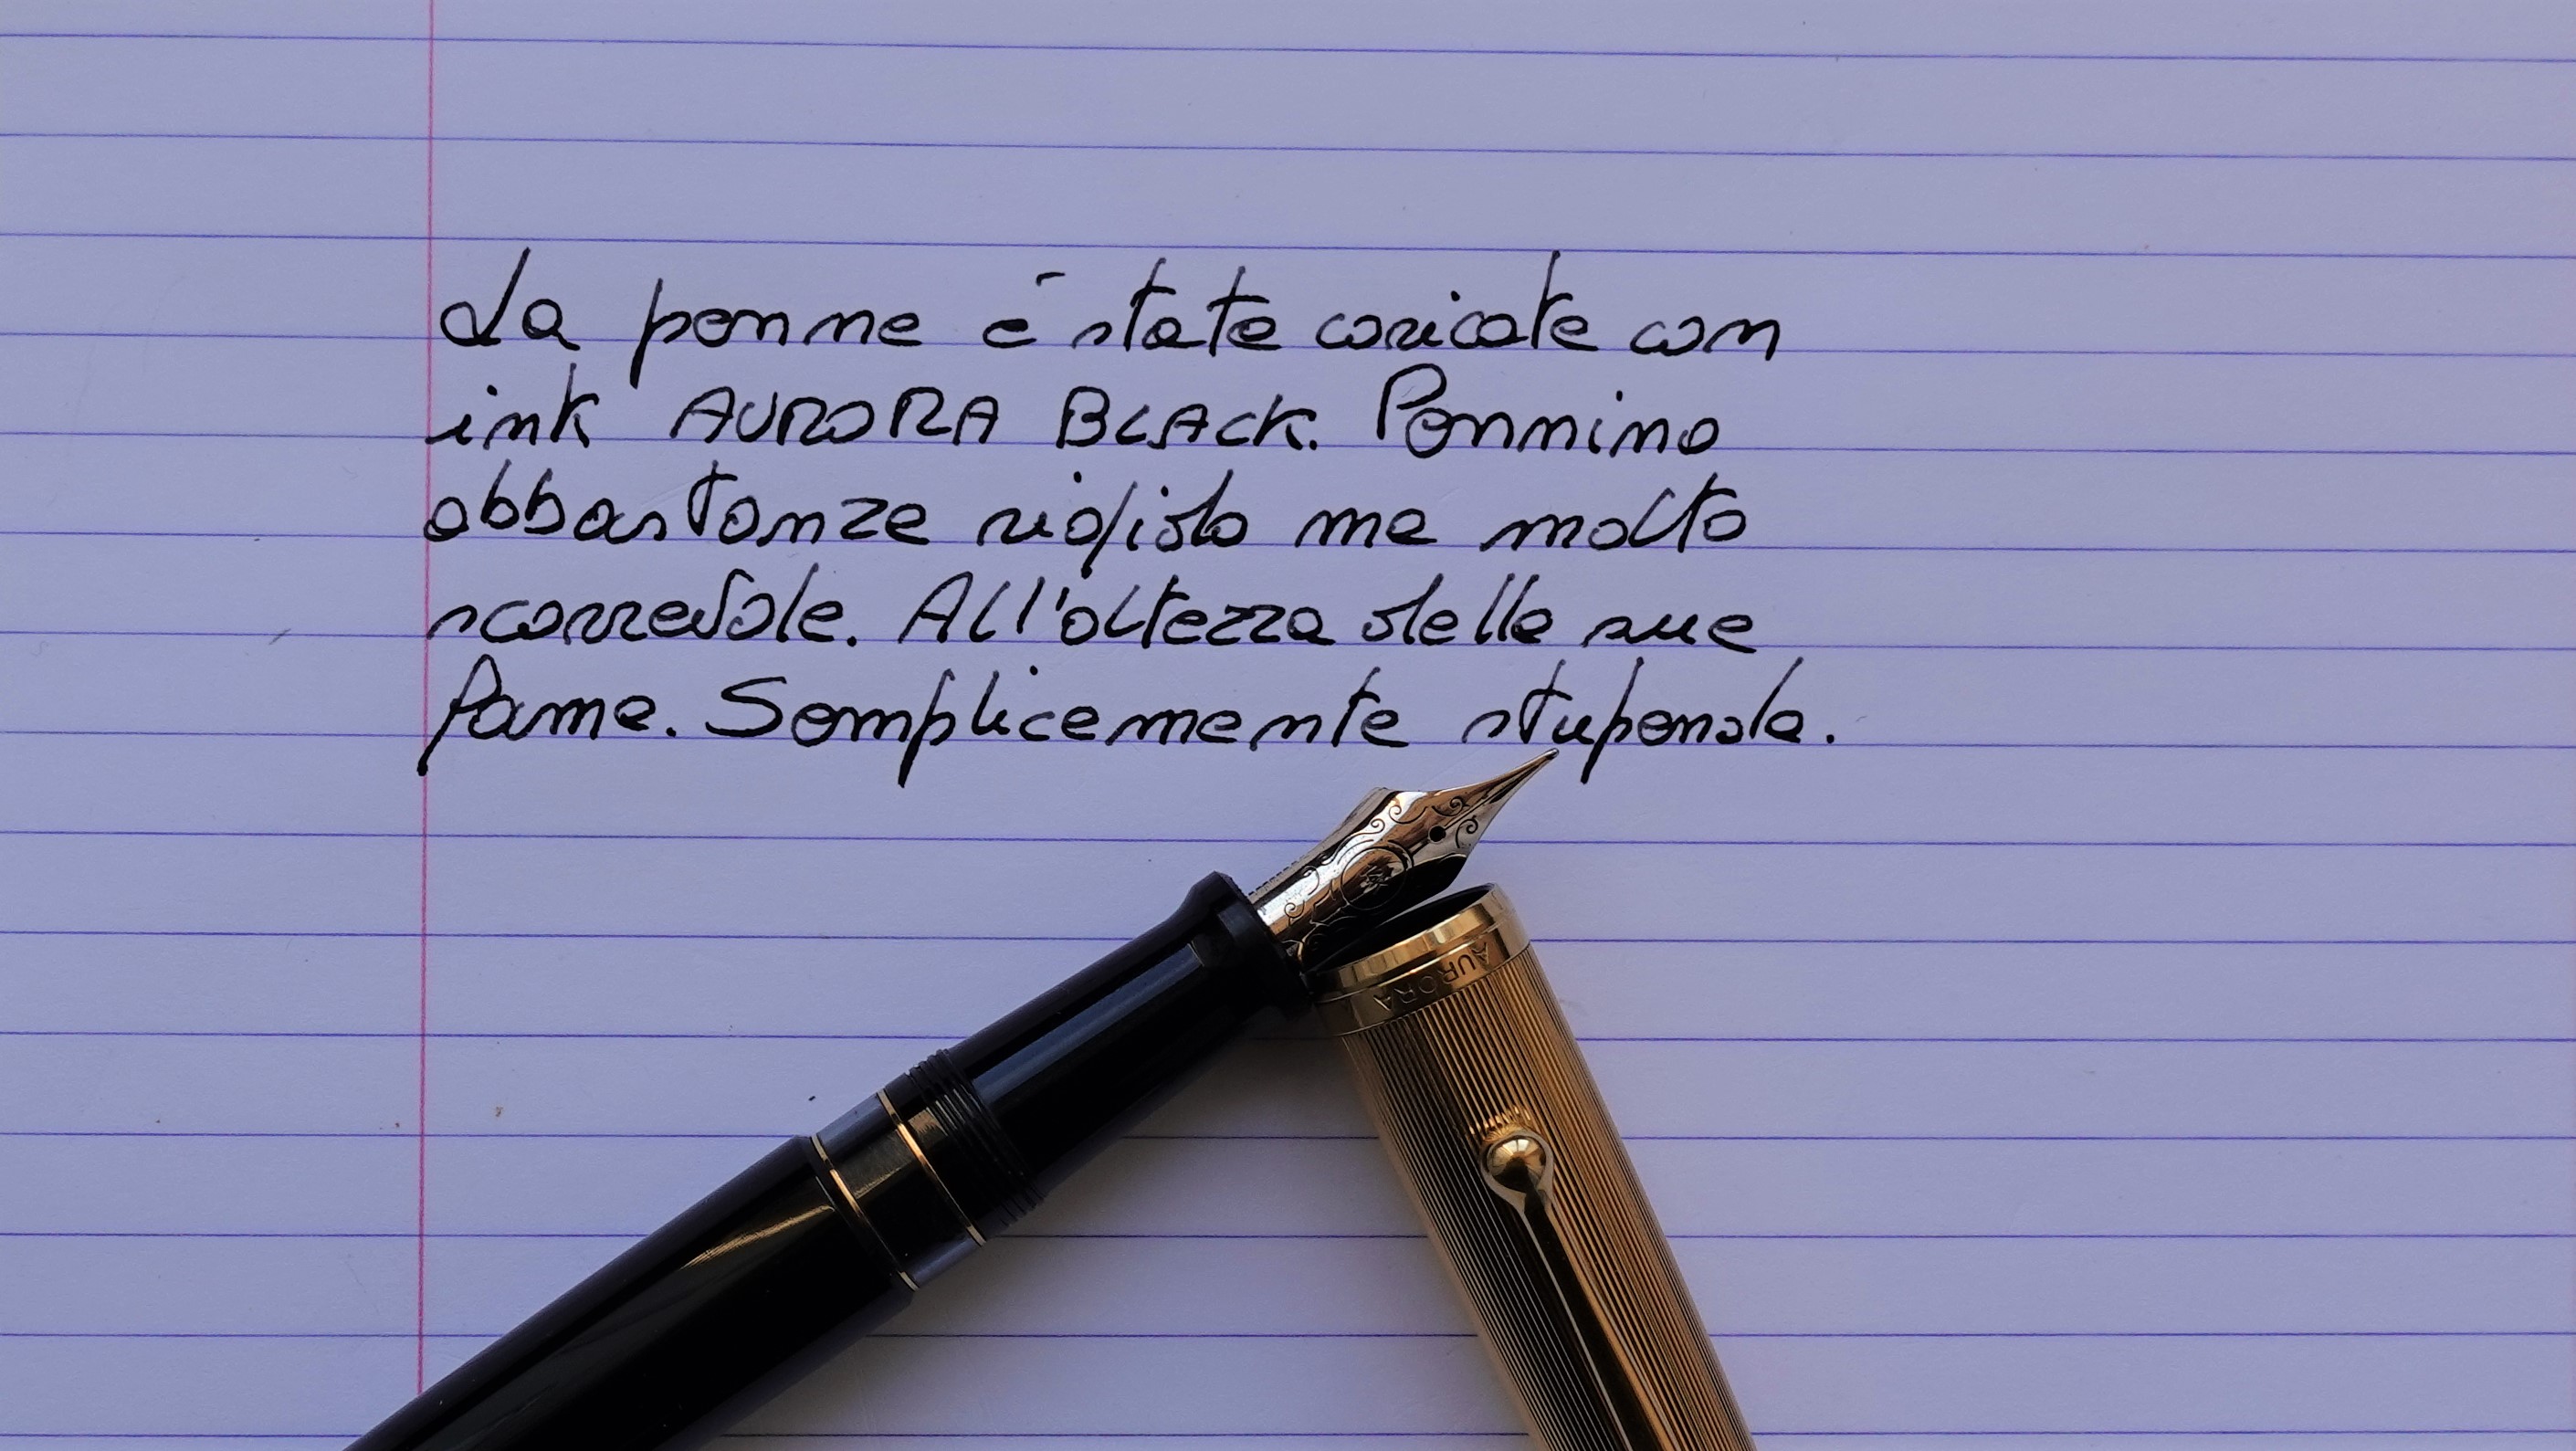 La penna è stata caricata con
ink AURORA BLACK. Pennino
abbastanza rigido ma molto
scorrevole. All'altezza della sua
fama. Semplicemente stupenda.
AURORA